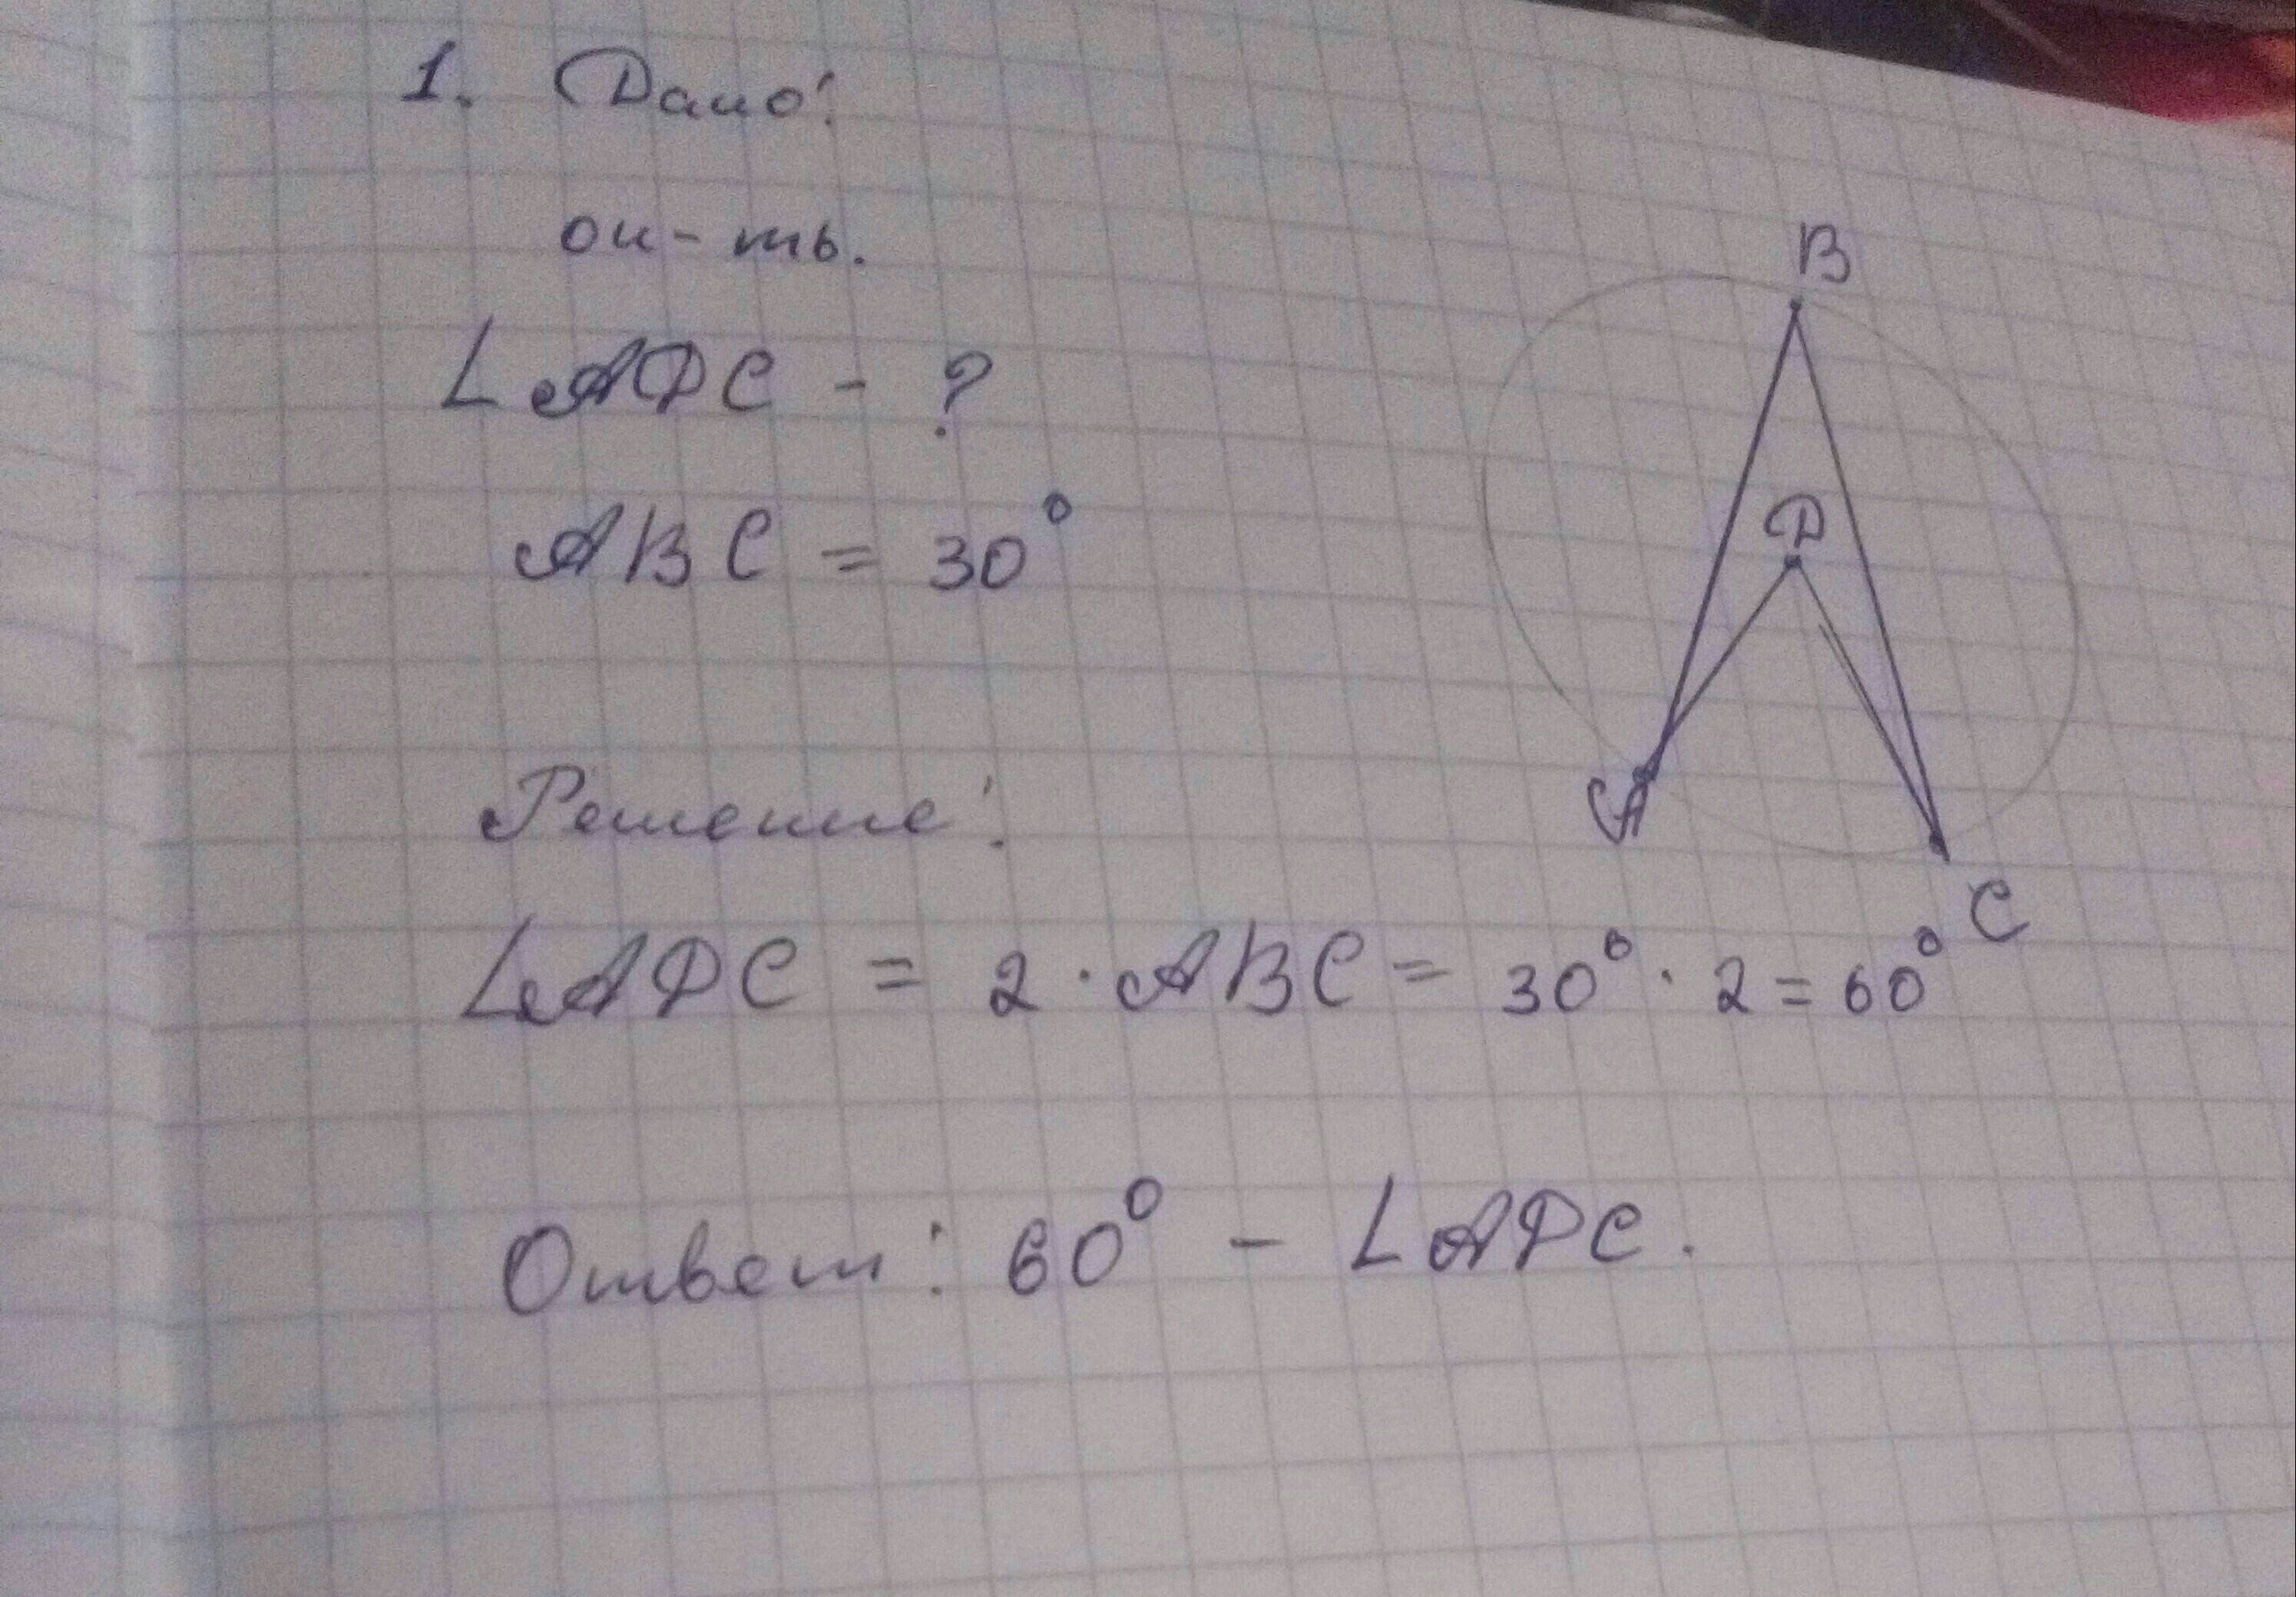 1. Дано:
ок-ть.
∠ADC - ?
ABC = 30°
B
D
A
C
Решение:
∠ADC = 2 · ABC = 30° · 2 = 60°
Ответ: 60° - ∠ADC.